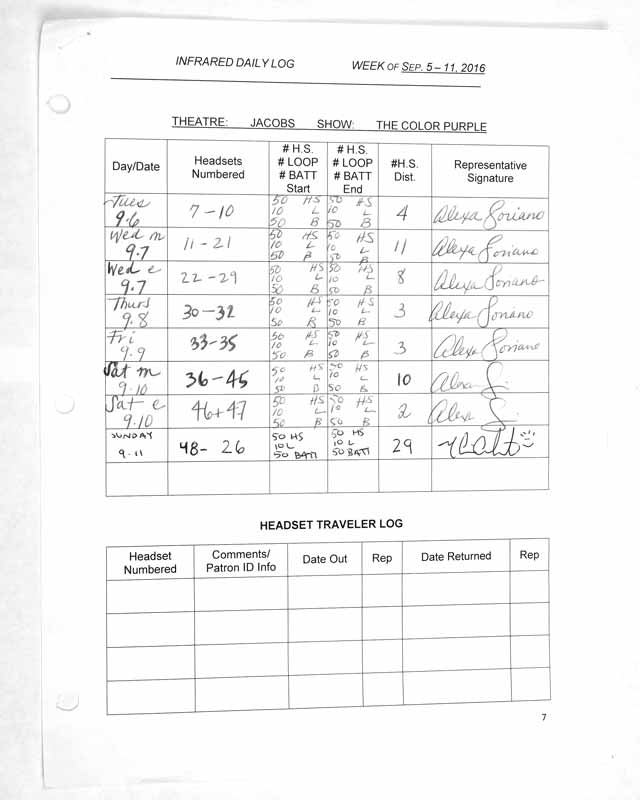 INFRARED DAILY LOG WEEK OF SEP. 5 – 11, 2016
THEATRE: JACOBS SHOW: THE COLOR PURPLE
Day/Date Headsets Numbered # H.S. # LOOP # BATT Start # H.S. # LOOP # BATT End #H.S. Dist. Representative Signature
Tues 9.6 7-10 50 HS 10 L 50 B 50 HS 10 L 50 B 4 Alexa Soriano
Wed m 9.7 11-21 50 HS 10 L 50 B 50 HS 10 L 50 B 11 Alexa Soriano
Wed e 9.7 22-29 50 HS 10 L 50 B 50 HS 10 L 50 B 8 Alexa Soriano
Thurs 9.8 30-32 50 HS 10 L 50 B 50 HS 10 L 50 B 3 Alexa Soriano
Fri 9.9 33-35 50 HS 10 L 50 B 50 HS 10 L 50 B 3 Alexa Soriano
Sat m 9.10 36-45 50 HS 10 L 50 B 50 HS 10 L 50 B 10 Alexa S.
Sat e 9.10 46+47 50 HS 10 L 50 B 50 HS 10 L 50 B 2 Alexa S.
SUNDAY 9.11 48- 26 50 HS 10 L 50 BATT 50 HS 10 L 50 BATT 29
HEADSET TRAVELER LOG
Headset Numbered Comments/ Patron ID Info Date Out Rep Date Returned Rep
7